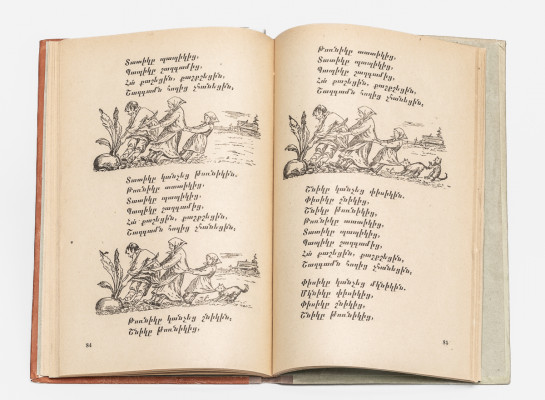 Տատիկը պապիկից,
Պապիկը շաղգամից,
Հա քաշեցին, քաշքշեցին,
Շաղգամն հողից չհանեցին,
Տատիկը կանչեց թոռնիկին.
Թոռնիկը տատիկից,
Տատիկը պապիկից,
Պապիկը շաղգամից,
Հա քաշեցին, քաշքշեցին,
Շաղգամն հողից չհանեցին,
Թոռնիկը կանչեց շնիկին,
Շնիկը թոռնիկից,
84
Թոռնիկը տատիկից,
Տատիկը պապիկից,
Պապիկը շաղգամից,
Հա քաշեցին, քաշքշեցին,
Շաղգամն հողից չհանեցին,
Շնիկը կանչեց փիսիկին.
Փիսիկը շնիկից,
Շնիկը թոռնիկից,
Թոռնիկը տատիկից,
Տատիկը պապիկից,
Պապիկը շաղգամից,
Հա քաշեցին, քաշքշեցին,
Շաղգամն հողից չհանեցին,
Փիսիկը կանչեց մկնիկին.
Մկնիկը փիսիկից,
Փիսիկը շնիկից,
Շնիկը թոռնիկից,